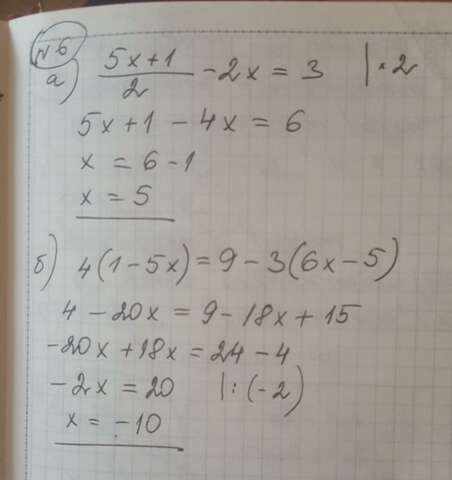 №6
а) (5x+1)/2 - 2x = 3 | · 2
5x+1 - 4x = 6
x = 6-1
x = 5
б) 4(1-5x) = 9 - 3(6x-5)
4 - 20x = 9 - 18x + 15
-20x + 18x = 24 - 4
-2x = 20 | : (-2)
x = -10